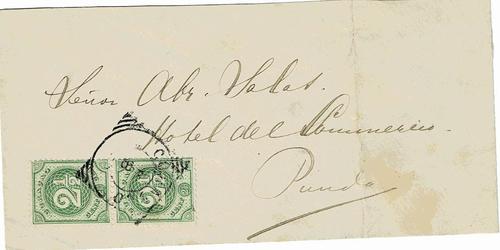 Señor Abr. Salas.
Hotel del Commercio.
Punda
2½ 2½